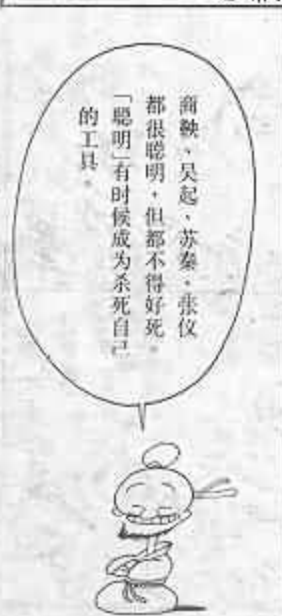 商鞅、吴起、苏秦、张仪
都很聪明，但都不得好死。
「聪明」有时候成为杀死自己
的工具。